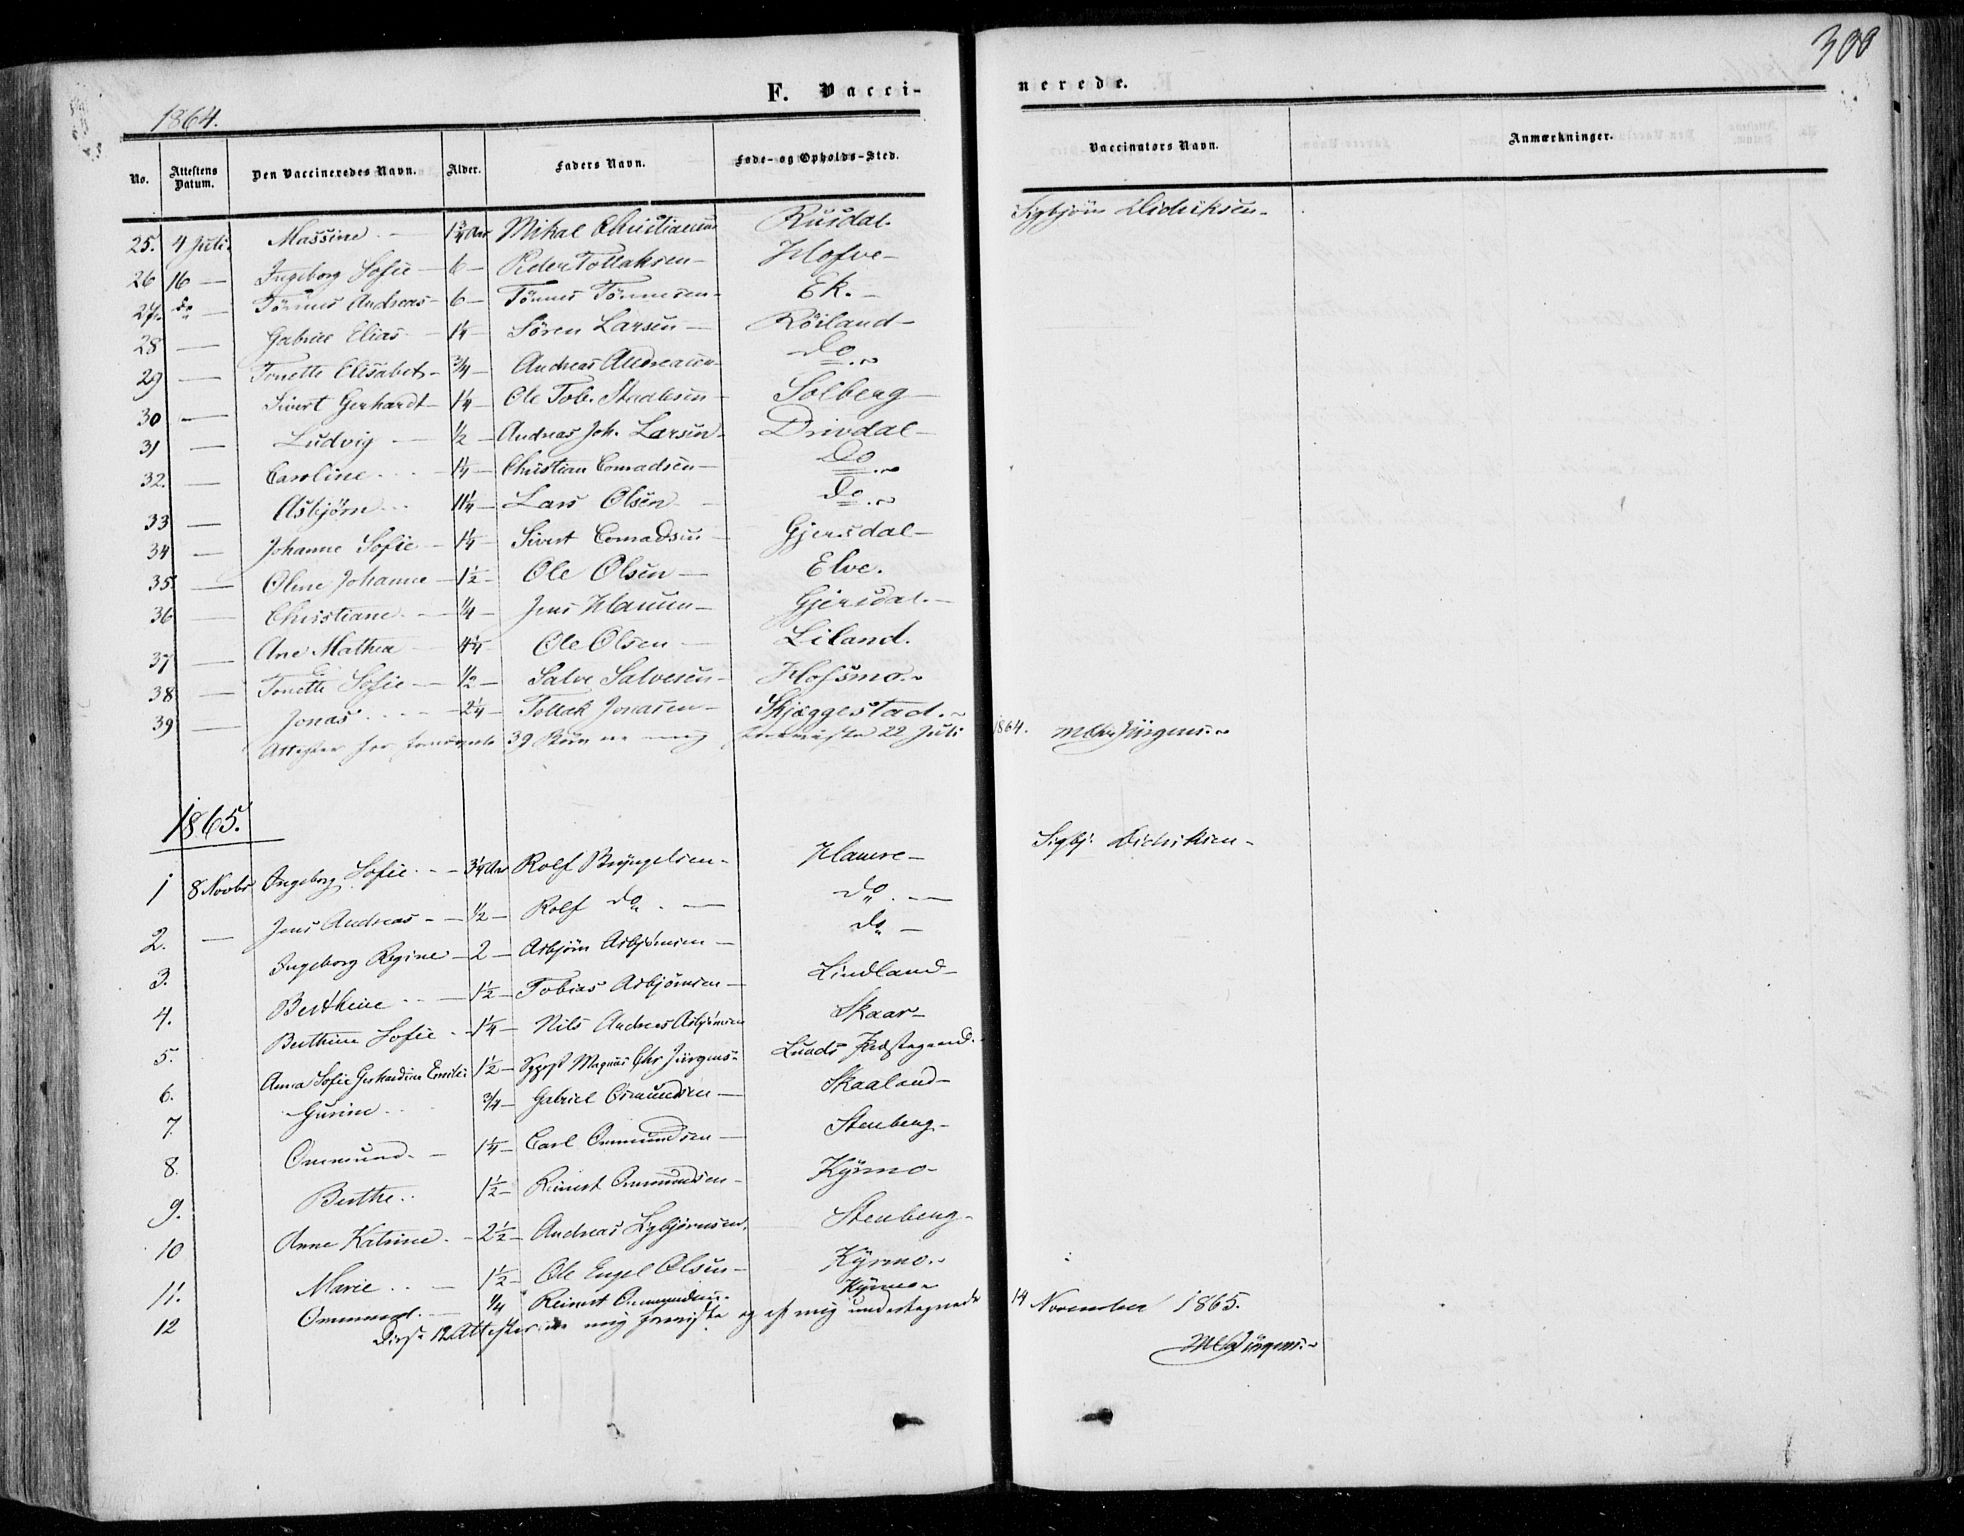 300
1864.
F. Vacci-
nerede.
No. Attestens Datum. Den Vaccineredes Navn. Alder. Faders Navn. Føde- og Opholds-Sted. Vaccinators Navn. Anmærkninger.
25. 4 Juli. Massine. — Mikal Rusdal. Sigbjörn Didriksen.
26 16 — Ingeborg Sofie — 6 — Peder Tollaksen — Hofve —
27. do — Tönnes Andreas — 6 — Tönnes Tönnesen — Ek. —
28 — Gabriel Elias — 1¼ — Sören Larsen — Röiland —
29 — Tonette Elisabet — ¾ — Andreas Andreasen — do
30 — Sivert Gerhardt — 1¼ — Ole Tob. Staalesen — Solberg —
31 — Ludvig — ½ — Andreas Joh. Larsen — Drivdal —
32. — Caroline — 1¼ — Christian Conradsen — Do
33 — Asbjørn — 1¼ — Lars Olsen — do
34 — Johanne Sofie — 1¼ — Sivert Conradsen — Gjersdal —
35. — Oline Johanne — 1½ — Ole Olsen — Elve.
36 — Christiane — ¼ — Jens Hansen — Gjersdal. —
37 — Ane Mathea 4¼ — Ole Olsen — Liland.
38 — Tonette Sofie — ½ — Salve Salvesen — Hofsmo.
39 — Jonas — 2¼ — Tollak Jonasen — Skjæggestad.
Attester for 39 Börn ere mig 22 Juli 1864. MChrJürgens.
1865.
1 8 Novbr Ingeborg Sofie — 3¼ Aar Rolf Bryngelsen — Hamre — Sigbj. Didriksen —
2. — Jens Andreas — ½ — Rolf do — do —
3. Ingeborg Regine — 2 — Asbjörn Asbjörnsen — do —
4. Berthine — 1½ — Tobias Asbjörnsen — Lindland —
5. Berthine Sofie — 1¼ — Nils Andreas Asbjörnsen Skaar —
6. Anna Sofie Gerhardine Emilie 1½ — Magnus Chr Jürgens. Lunds Præstegaard.
7. Gurine ¾ — Gabriel Osmundsen — Skaaland —
8. Ommund. — 1¼ — Carl Ommundsen — Stenberg —
9. Berthe 1½ — Reinert Ommundsen — Kyrmo —
10 Anne Katrine. — 2½ — Andreas Sigbjörnsen. Stenberg —
11. Marie — 1½ — Ole Engel Olsen — Kyrmo.
12 Ommund. — ¼ Reinert Ommundsen. Kyrmo
Disse 12 Attester ere mig foreviste og af mig undertegnede 14 November 1865.
MChrJürgens.